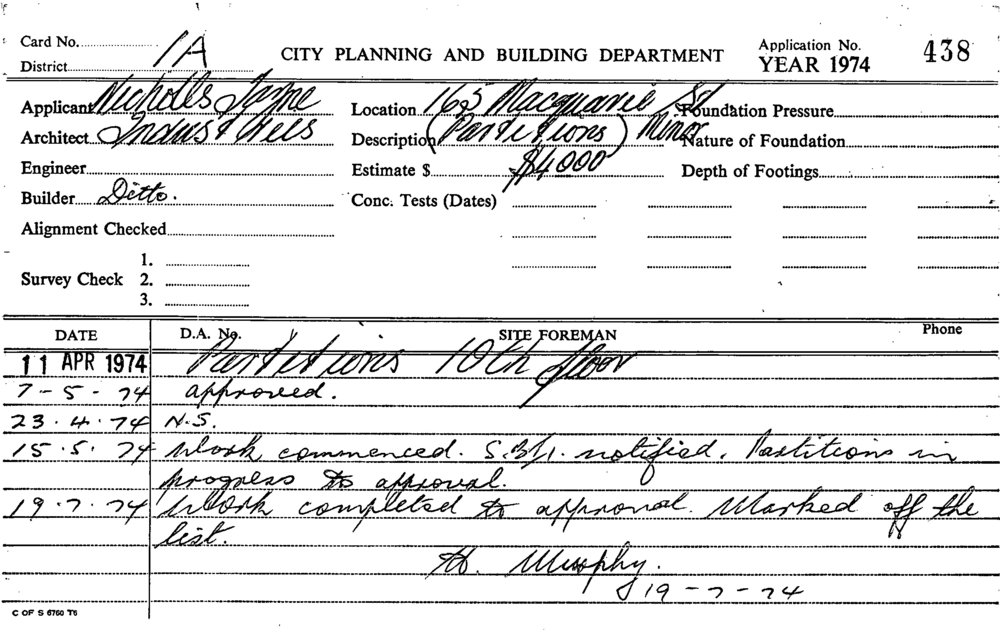 Card No. 1A
District
CITY PLANNING AND BUILDING DEPARTMENT
Application No. 438
YEAR 1974
Applicant Nicholls
Location 165 Macquarie St
Foundation Pressure
Architect Indust
Description (Partitions) Minor
Nature of Foundation
Engineer
Estimate $ $4000
Depth of Footings
Builder Ditto.
Conc. Tests (Dates)
Alignment Checked
Survey Check 1.
2.
3.
DATE D.A. No. SITE FOREMAN Phone
11 APR 1974 Partitions 10th floor
7-5-74 approved.
23.4.74 N.S.
15.5.74 Work commenced. S.B.I. notified. Partitions in
progress to approval.
19.7.74 Work completed to approval. Marked off the
list.
H. Murphy.
19-7-74
C OF S 6760 T6